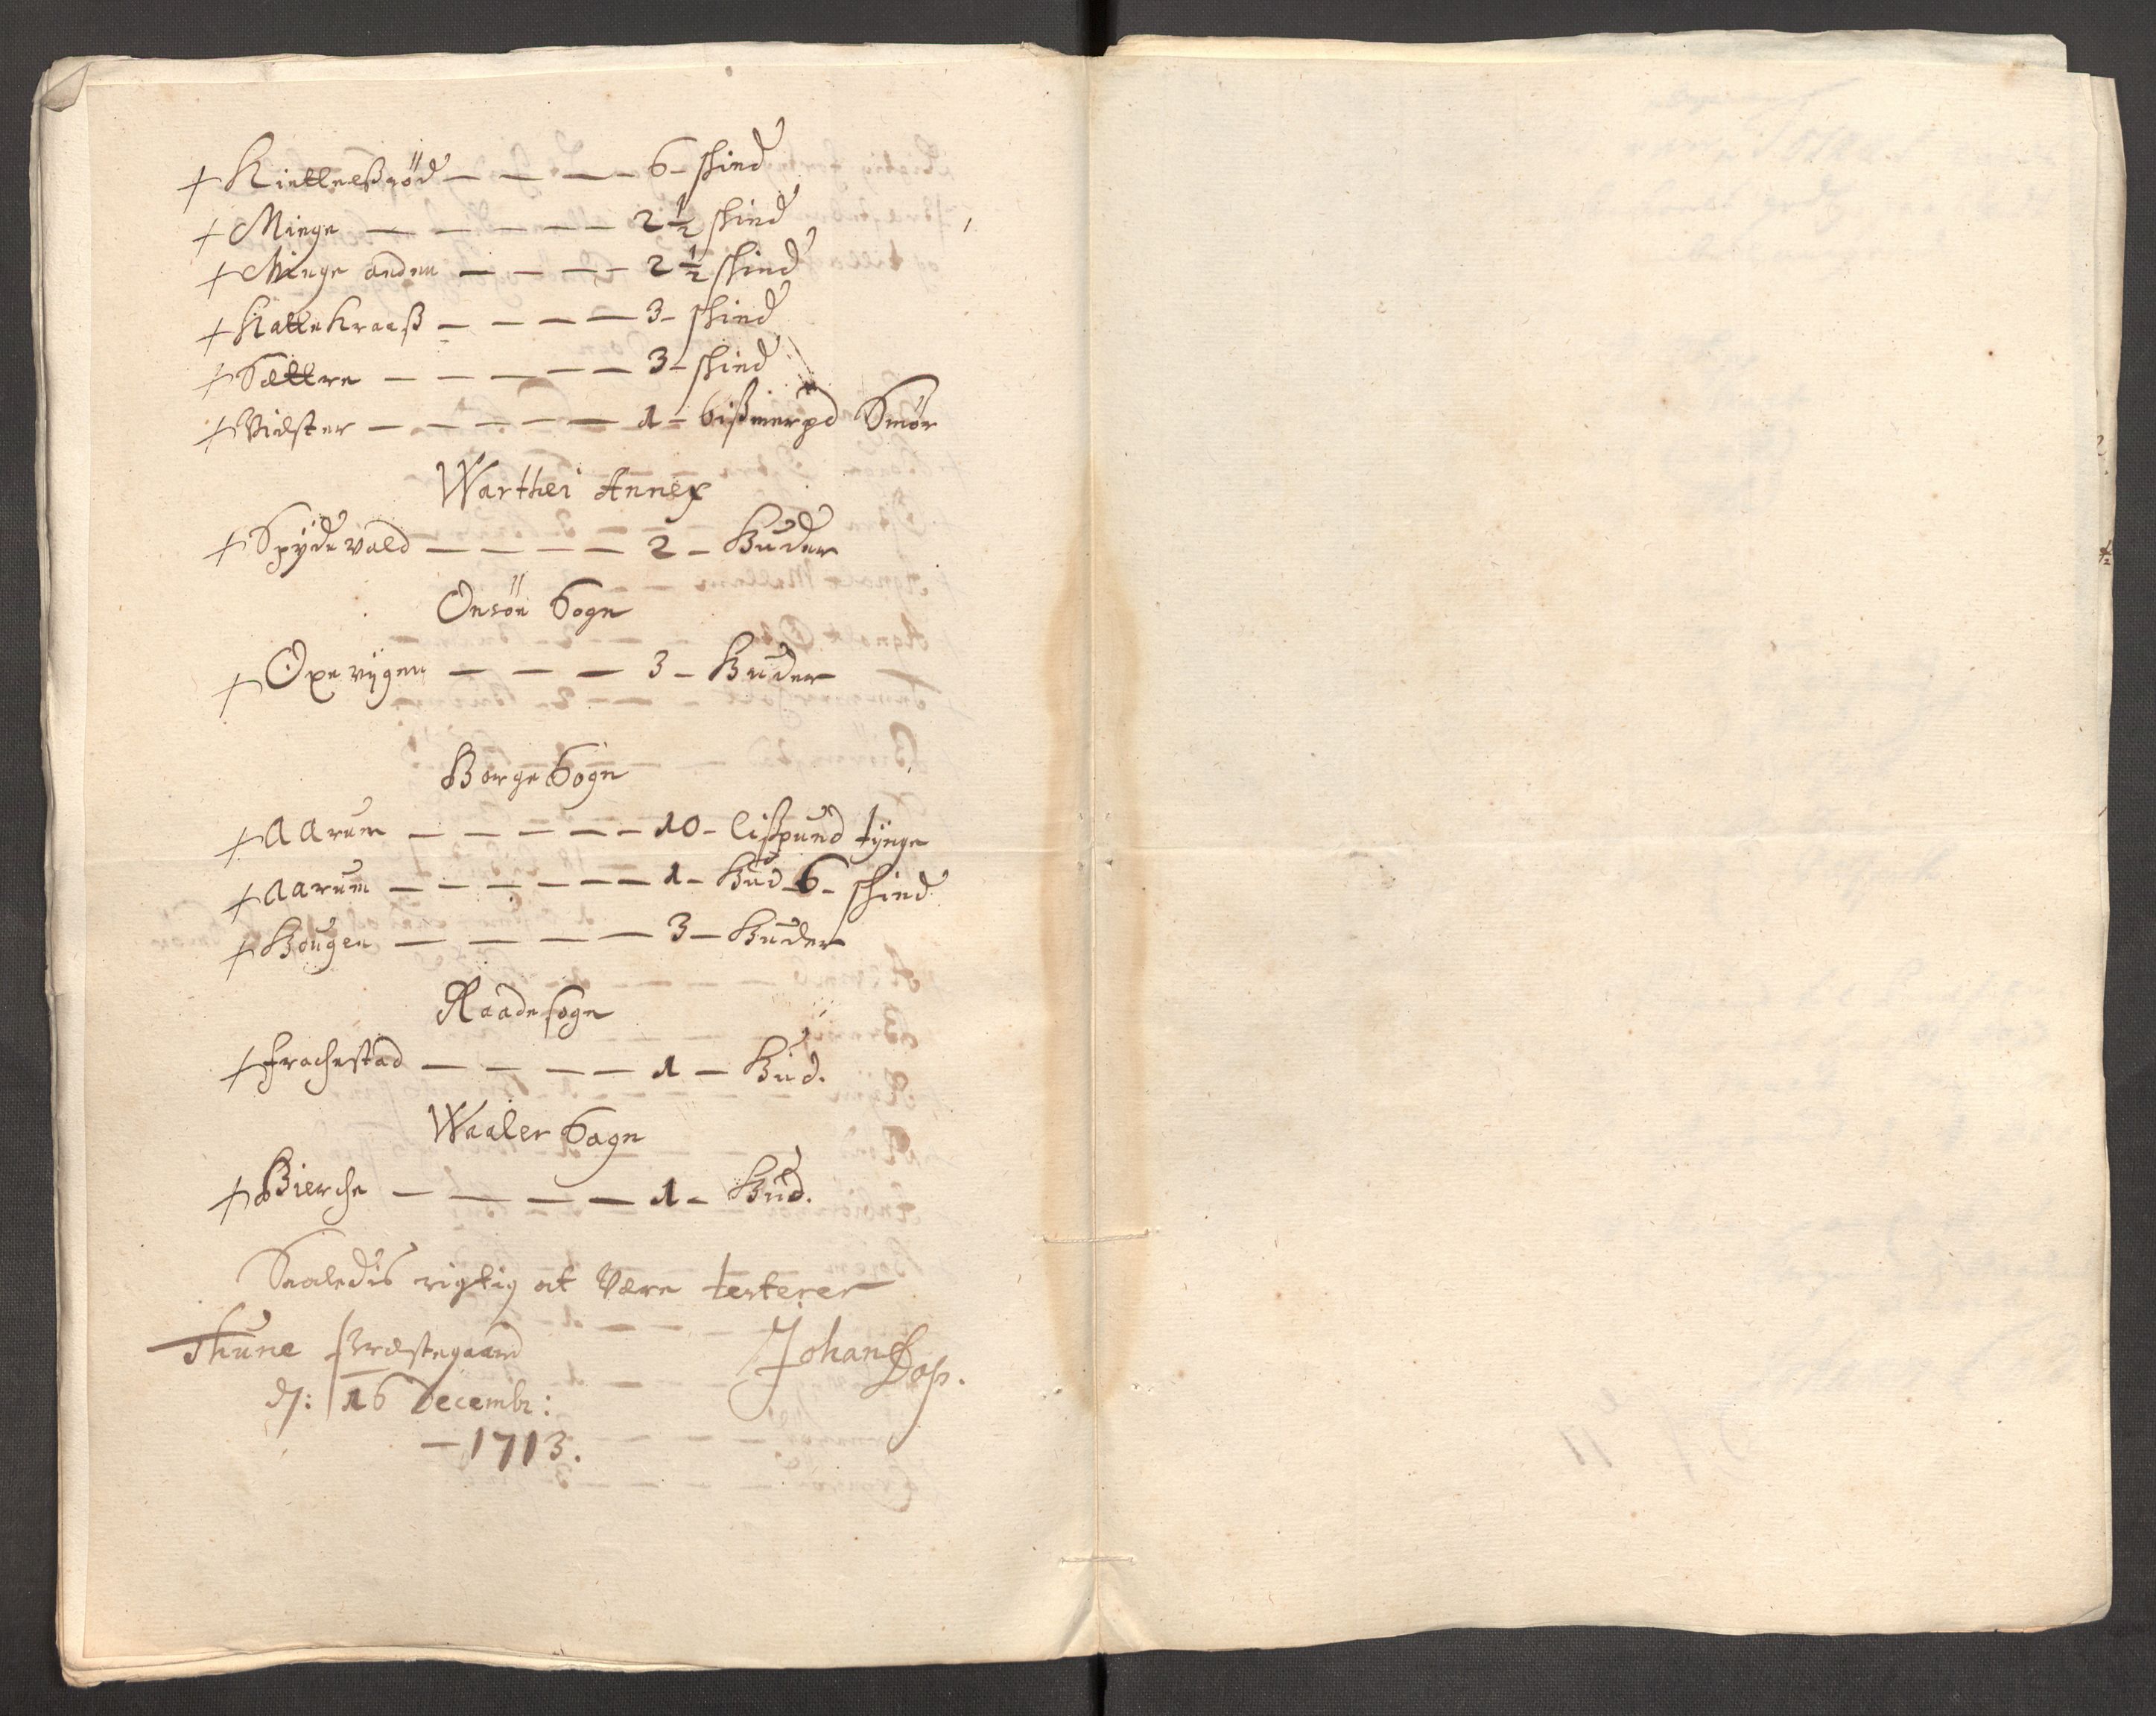 + Kiettelsrød — — — — 6 – skind
+ Minge — — — — — 2 1/2 skind
+ Minge anden — — — — 2 1/2 skind
+ Kallekraaß — — — — 3 – skind
+ Sættre — — — — — 3 – skind
+ Vidster — — — — — 1 – bißmerpd Smör
Warthei Annex
+ Spÿdevald — — — — 2 – Huder
Onsöÿ Sogn
+ Oxevigen — — — 3 – Huder
Borge Sogn
+ Aarum — — — — — 10 – lißpund tÿnge
+ Aarum — — — — — 1 – Hud 6 – skind
+ Hougen — — — — — 3 – Huder
Raade sogn
+ Frachestad — — — — 1 – Hud.
Waaler Sogn
+ Bierche — — — — — 1 – Hud.
Saaledis rigtig at være testerer
Thune Præstegaard Johan Dop.
d: 16 Decembr:
— 1713.